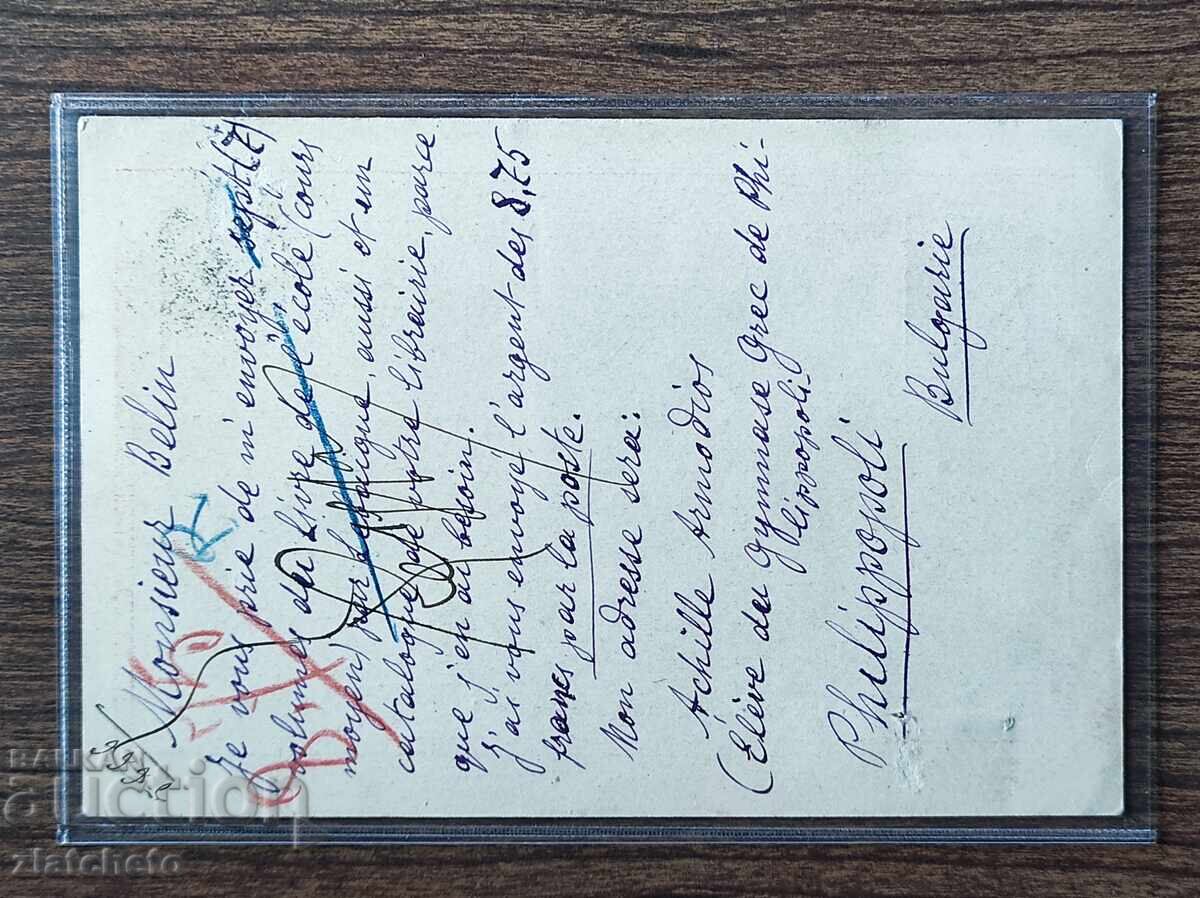 Monsieur Belin
Je vous prie de m'envoyer sept (7)
volumes du Livre de l'école (cours
moyen) par aussi et un
catalogue de votre librairie, parce
que j'en ai besoin.
J'ai vous envoyé l'argent des 8,75
francs par la poste.
Mon adresse sera:
Achille Armodios
(Élève du gymnase Grec de Phi-
lippopoli
Philippopoli
Bulgarie
BALKAN
auction
zlatcheto